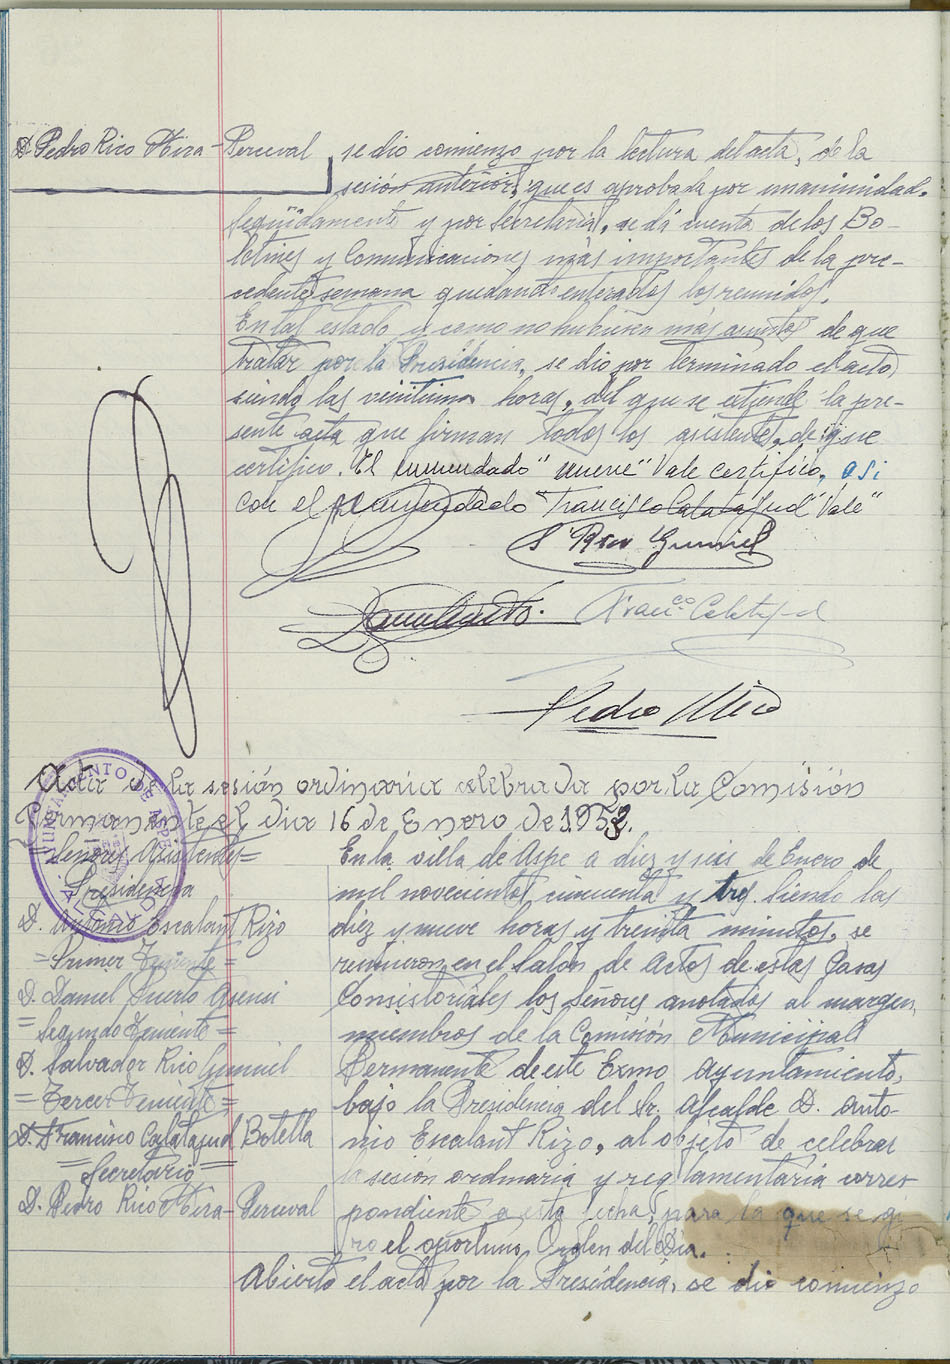 D. Pedro Rico Mira-Perceval
se dio comienzo por la lectura del acta, de la
sesión anterior, que es aprobada por unanimidad.
Seguidamente y por Secretaria, se dá cuenta de los Bo-
letines y Comunicaciones más importantes de la pre-
cedente semana quedando enterados los reunidos.
En tal estado y como no hubiera más asuntos de que
tratar por la Presidencia, se dio por terminado el acto,
siendo las veintiuna horas, del que se extiende la pre-
sente acta que firman todos los asistentes, de que
certifico. El enmendado "nueve" Vale certifico, asi
con el enmendado "Francisco Calatayud" Vale"
S Rico Gumiel
Daniel Puerto. Franco. Calatayud
Pedro Rico
Acta de la sesión ordinaria celebrada por la Comisión
Permanente el dia 16 de Enero de 1953.
AYUNTAMIENTO DE ASPE
ALCALDIA
Señores Asistentes=
Presidencia
D. Antonio Escalant Rizo
=Primer Teniente=
D. Daniel Puerto Asensi
=Segundo Teniente=
D. Salvador Rico Gumiel
=Tercer Teniente=
D. Francisco Calatayud Botella
=Secretario=
D. Pedro Rico Mira-Perceval
En la villa de Aspe a diez y seis de Enero de
mil novecientos cincuenta y tres. Siendo las
diez y nueve horas y treinta minutos, se
reunieron en el Salón de Actos de estas Casas
Consistoriales los Señores anotados al margen,
miembros de la Comisión Municipal
Permanente de este Exmo Ayuntamiento,
bajo la Presidencia del Sr. Alcalde D. Anto-
nio Escalant Rizo, al objeto de celebrar
la sesión ordinaria y reglamentaria corres
pondiente a esta fecha, para la que se gi
ro el oportuno Orden del Dia.
Abierto el acto por la Presidencia, se dio comienzo